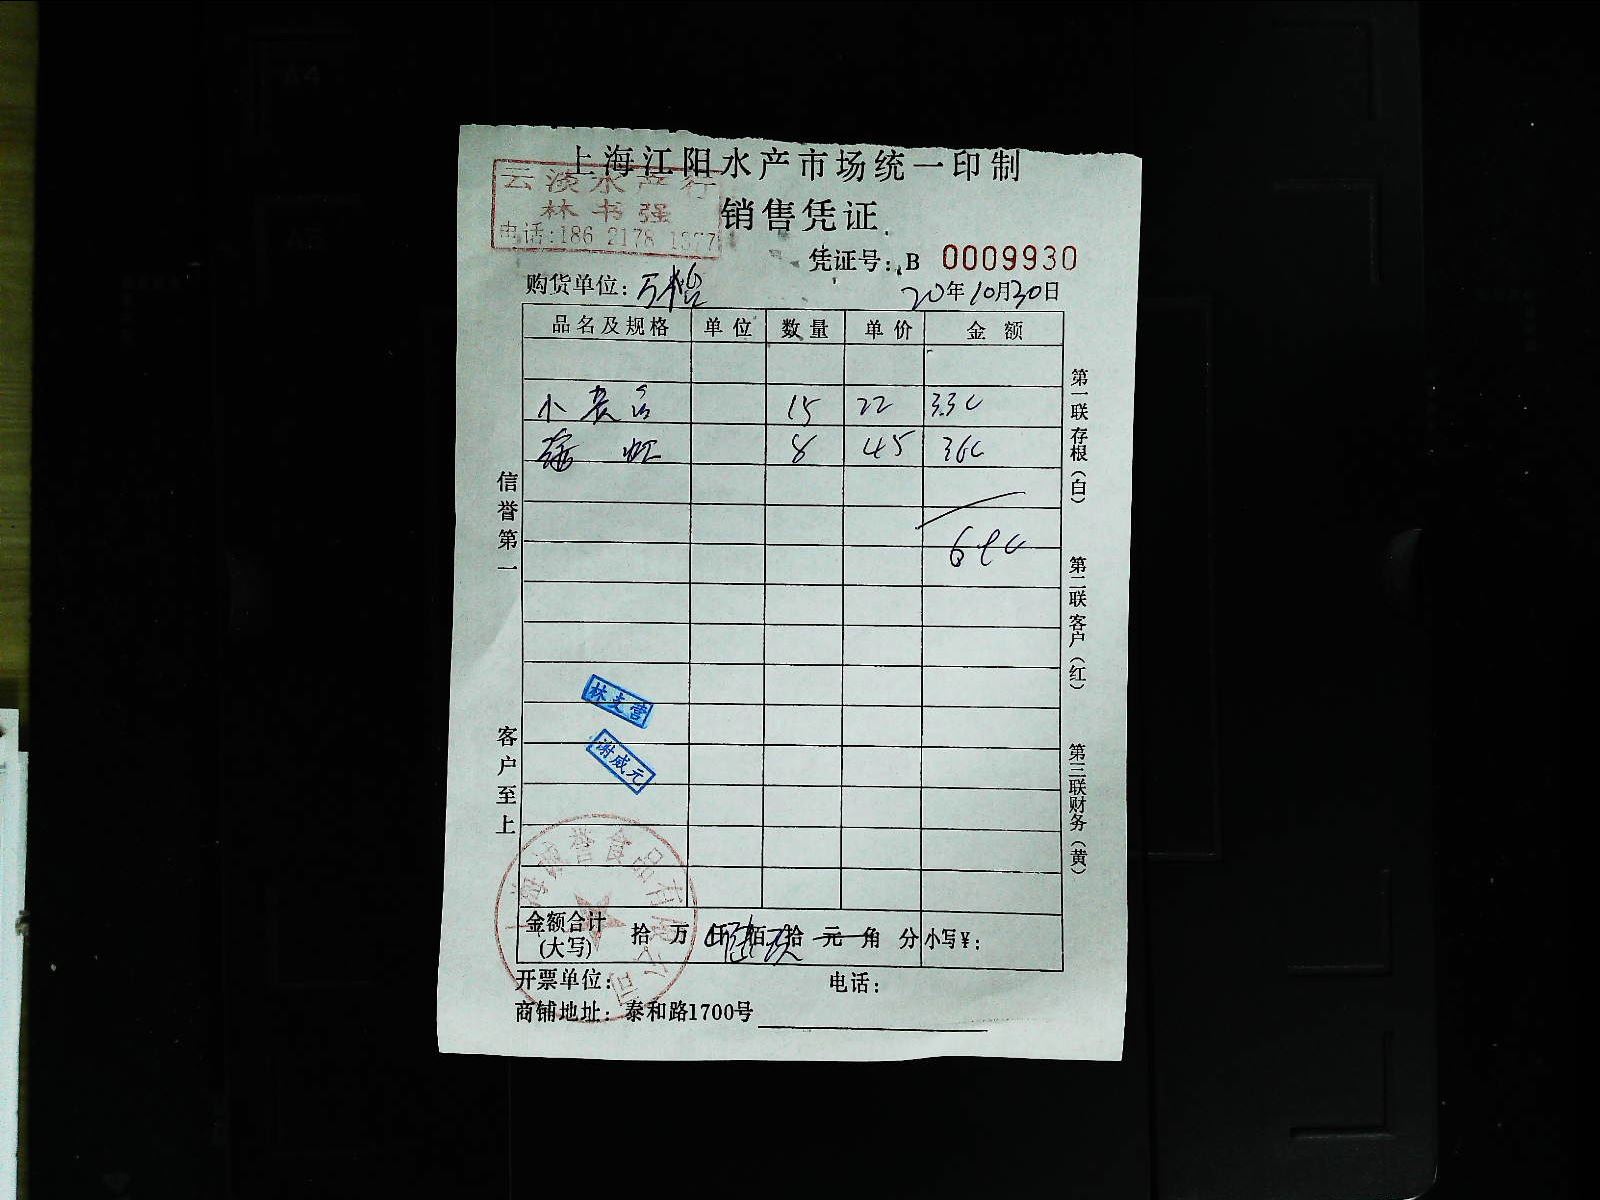 上海江阳水产市场统一印制
云淡水产行
林书强
电话:186 2178 1877
销售凭证
凭证号: B 0009930
购货单位: 万裕
20年10月30日
品名及规格 单位 数量 单价 金额
小黄 15 22 330
海虾 8 45 360
690
信誉第一
客户至上
第一联存根(白)
第二联客户(红)
第三联财务(黄)
林支营
谢威元
上海诚誉食品有限公司
金额合计(大写) 拾 万 仟 陆佰 玖拾 元 角 分 小写¥:
开票单位: 电话:
商铺地址: 泰和路1700号